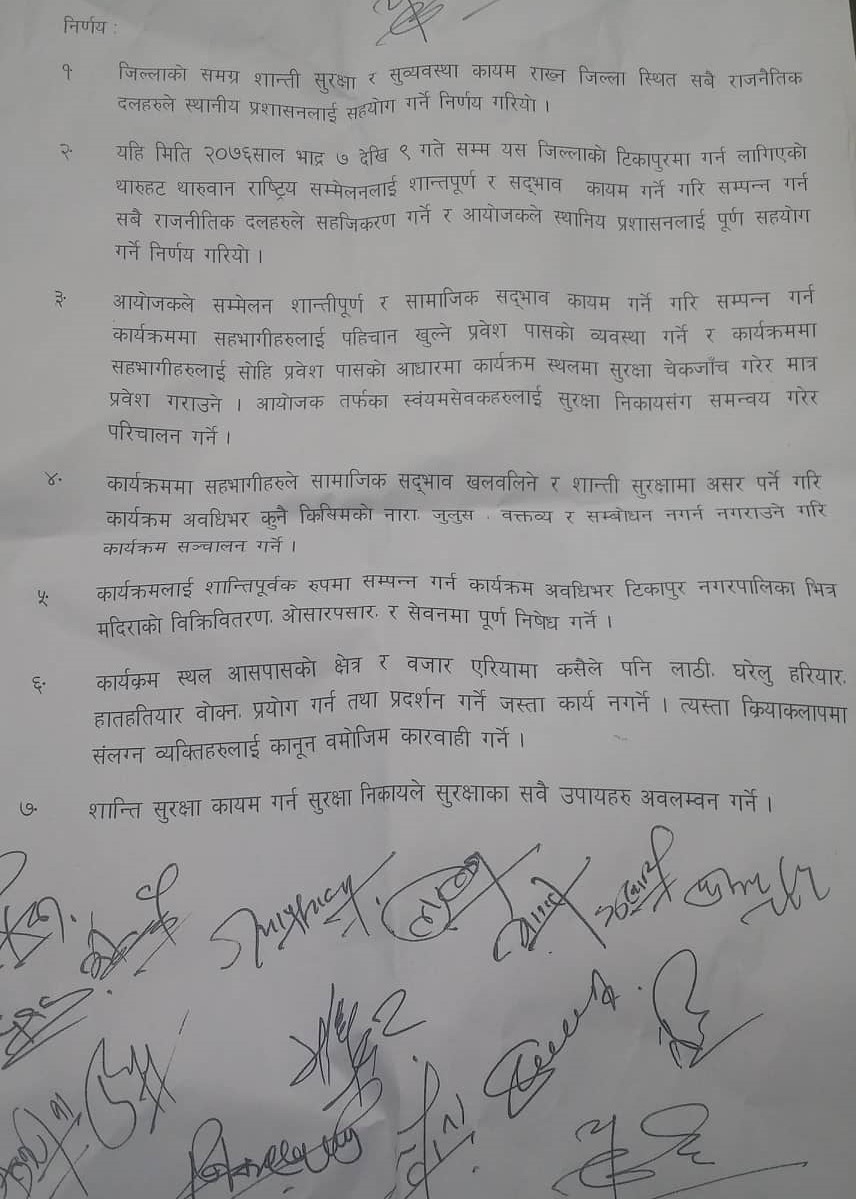 निर्णय :
१. जिल्लाको समग्र शान्ती सुरक्षा र सुव्यवस्था कायम राख्न जिल्ला स्थित सबै राजनैतिक
दलहरुले स्थानीय प्रशासनलाई सहयोग गर्ने निर्णय गरियो ।
२. यहि मिति २०७६साल भाद्र ७ देखि ९ गते सम्म यस जिल्लाको टिकापुरमा गर्न लागिएको
थारुहट थारुवान राष्ट्रिय सम्मेलनलाई शान्तपूर्ण र सद्‌भाव कायम गर्ने गरि सम्पन्न गर्न
सबै राजनीतिक दलहरुले सहजिकरण गर्ने र आयोजकले स्थानिय प्रशासनलाई पूर्ण सहयोग
गर्ने निर्णय गरियो ।
३. आयोजकले सम्मेलन शान्तीपूर्ण र सामाजिक सद्‌भाव कायम गर्ने गरि सम्पन्न गर्न
कार्यक्रममा सहभागीहरुलाई पहिचान खुल्ने प्रवेश पासको व्यवस्था गर्ने र कार्यक्रममा
सहभागीहरुलाई सोहि प्रवेश पासको आधारमा कार्यक्रम स्थलमा सुरक्षा चेकजाँच गरेर मात्र
प्रवेश गराउने । आयोजक तर्फका स्वंयमसेवकहरुलाई सुरक्षा निकायसंग समन्वय गरेर
परिचालन गर्ने ।
४. कार्यक्रममा सहभागीहरुले सामाजिक सद्‌भाव खलवलिने र शान्ती सुरक्षामा असर पर्ने गरि
कार्यक्रम अवधिभर कुनै किसिमको नारा, जुलुस , वक्तव्य र सम्बोधन नगर्न नगराउने गरि
कार्यक्रम सञ्चालन गर्ने ।
५. कार्यक्रमलाई शान्तिपूर्वक रुपमा सम्पन्न गर्न कार्यक्रम अवधिभर टिकापुर नगरपालिका भित्र
मदिराको विक्रिवितरण, ओसारपसार, र सेवनमा पूर्ण निषेध गर्ने ।
६. कार्यक्रम स्थल आसपासको क्षेत्र र वजार एरियामा कसैले पनि लाठी, घरेलु हरियार,
हातहतियार वोक्न, प्रयोग गर्न तथा प्रदर्शन गर्ने जस्ता कार्य नगर्ने । त्यस्ता क्रियाकलापमा
संलग्न व्यक्तिहरुलाई कानून वमोजिम कारवाही गर्ने ।
७. शान्ति सुरक्षा कायम गर्न सुरक्षा निकायले सुरक्षाका सवै उपायहरु अवलम्वन गर्ने ।